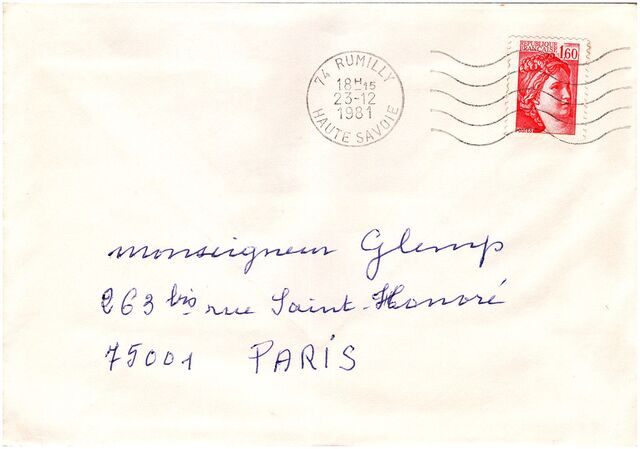 RÉPUBLIQUE
FRANÇAISE
1,60
74 RUMILLY
18H15
23-12
1981
HAUTE SAVOIE
monseigneur Glemp
263 bis rue Saint-Honoré
75001 PARIS